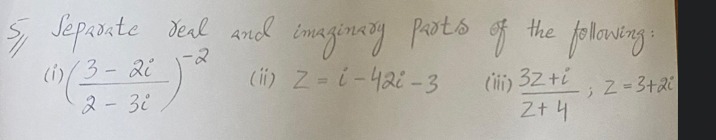 5, Separate real and imaginary parts of the following:
(i) (3 - 2i / 2 - 3i)^-2 (ii) Z = i - 42i - 3 (iii) 3Z + i / Z + 4 ; Z = 3 + 2i